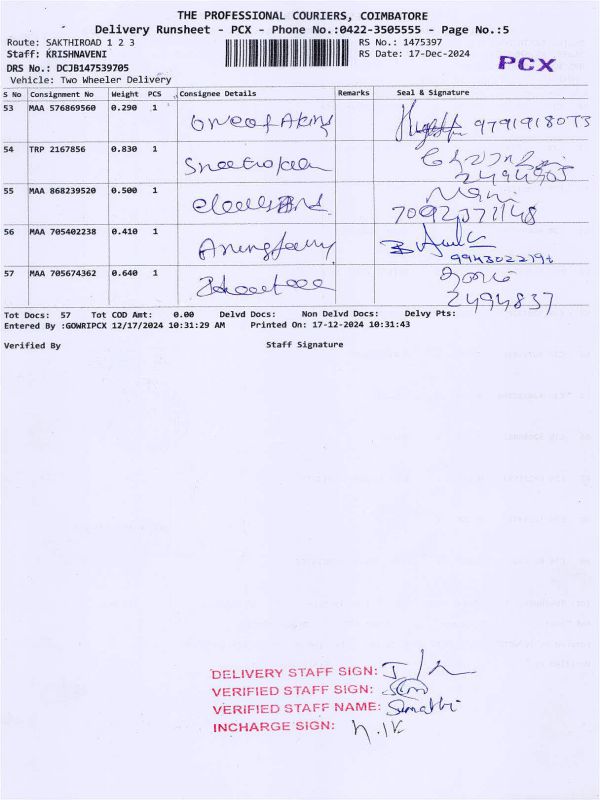 THE PROFESSIONAL COURIERS, COIMBATORE
Delivery Runsheet - PCX - Phone No.:0422-3505555 - Page No.:5
Route: SAKTHIROAD 1 2 3 RS No.: 1475397
Staff: KRISHNAVENI RS Date: 17-Dec-2024
DRS No.: DCJB147539705 PCX
Vehicle: Two Wheeler Delivery
S No Consignment No Weight PCS Consignee Details Remarks Seal & Signature
53 MAA 576869560 0.290 1 9791918073
54 TRP 2167856 0.830 1
2494905
55 MAA 868239520 0.500 1 Mani
56 MAA 705402238 0.410 1
57 MAA 705674362 0.640 1
2494837
Tot Docs: 57 Tot COD Amt: 0.00 Delvd Docs: Non Delvd Docs: Delvy Pts:
Entered By :GOWRIPCX 12/17/2024 10:31:29 AM Printed On: 17-12-2024 10:31:43
Verified By Staff Signature
DELIVERY STAFF SIGN:
VERIFIED STAFF SIGN:
VERIFIED STAFF NAME: Sumathi
INCHARGE SIGN: